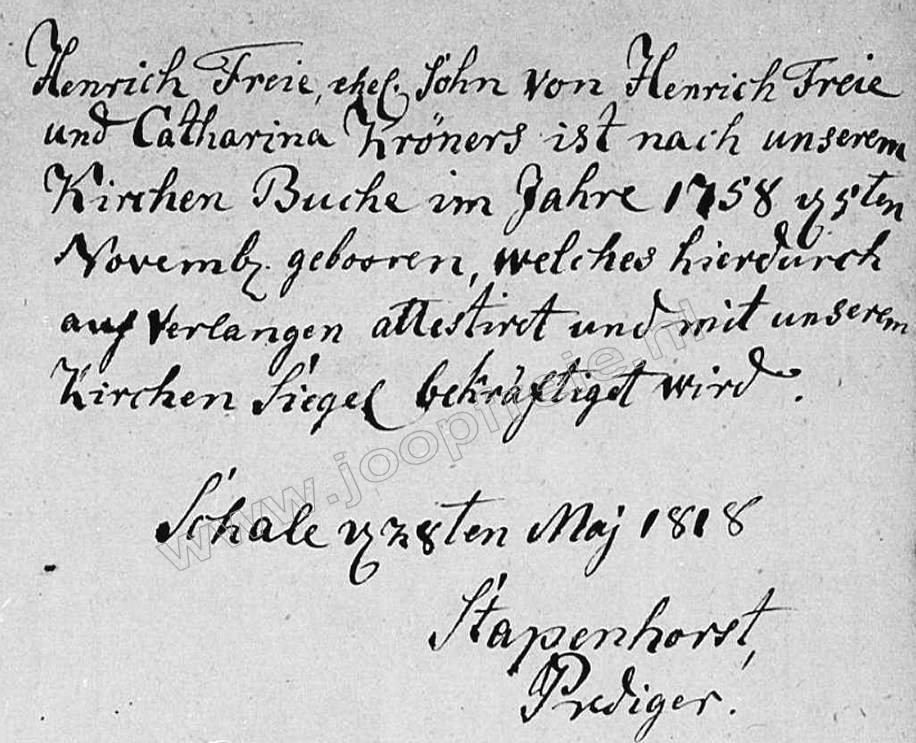 Henrich Freie, ehel. Sohn von Henrich Freie
und Catharina Kröners ist nach unserem
Kirchen Buche im Jahre 1758 d 5ten
Novembr. gebooren, welches hierdurch
auf Verlangen attestirt und mit unserem
Kirchen Siegel bekräftiget wird.
Schale d 28ten Maj 1818
Stapenhorst,
Prediger.
www.joopfreie.nl